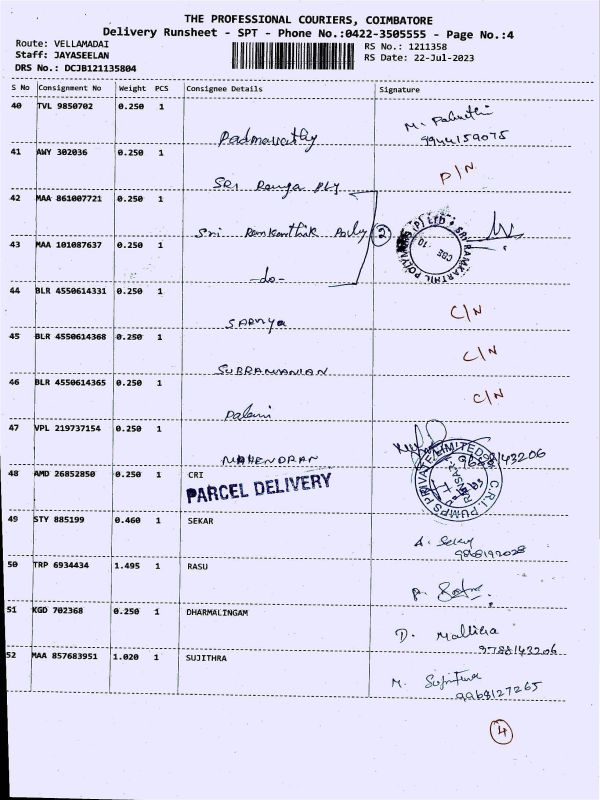 THE PROFESSIONAL COURIERS, COIMBATORE
Delivery Runsheet - SPT - Phone No.:0422-3505555 - Page No.:4
Route: VELLAMADAI
RS No.: 1211358
Staff: JAYASEELAN
RS Date: 22-Jul-2023
DRS No.: DCJB121135804
S No Consignment No Weight PCS Consignee Details Signature
40 TVL 9850702 0.250 1
Padmavathy M. 9944159075
41 AWY 302036 0.250 1
Sri Ranga Ply P/N
42 MAA 861007721 0.250 1
Sri Ramkarthik Poly 2
43 MAA 101087637 0.250 1
-do-
44 BLR 4550614331 0.250 1
Saranya C/N
45 BLR 4550614368 0.250 1
SUBRAMANIAN C/N
46 BLR 4550614365 0.250 1
Palani C/N
47 VPL 219737154 0.250 1
MAHENDRAN
48 AMD 26852850 0.250 1 CRI
PARCEL DELIVERY
C.R.I. PUMPS PRIVATE LIMITED
49 STY 885199 0.460 1 SEKAR
A. Sekar
50 TRP 6934434 1.495 1 RASU
51 KGD 702368 0.250 1 DHARMALINGAM
D. Mallika
9788143206
52 MAA 857683951 1.020 1 SUJITHRA
M. Sujithra
9968127265
4